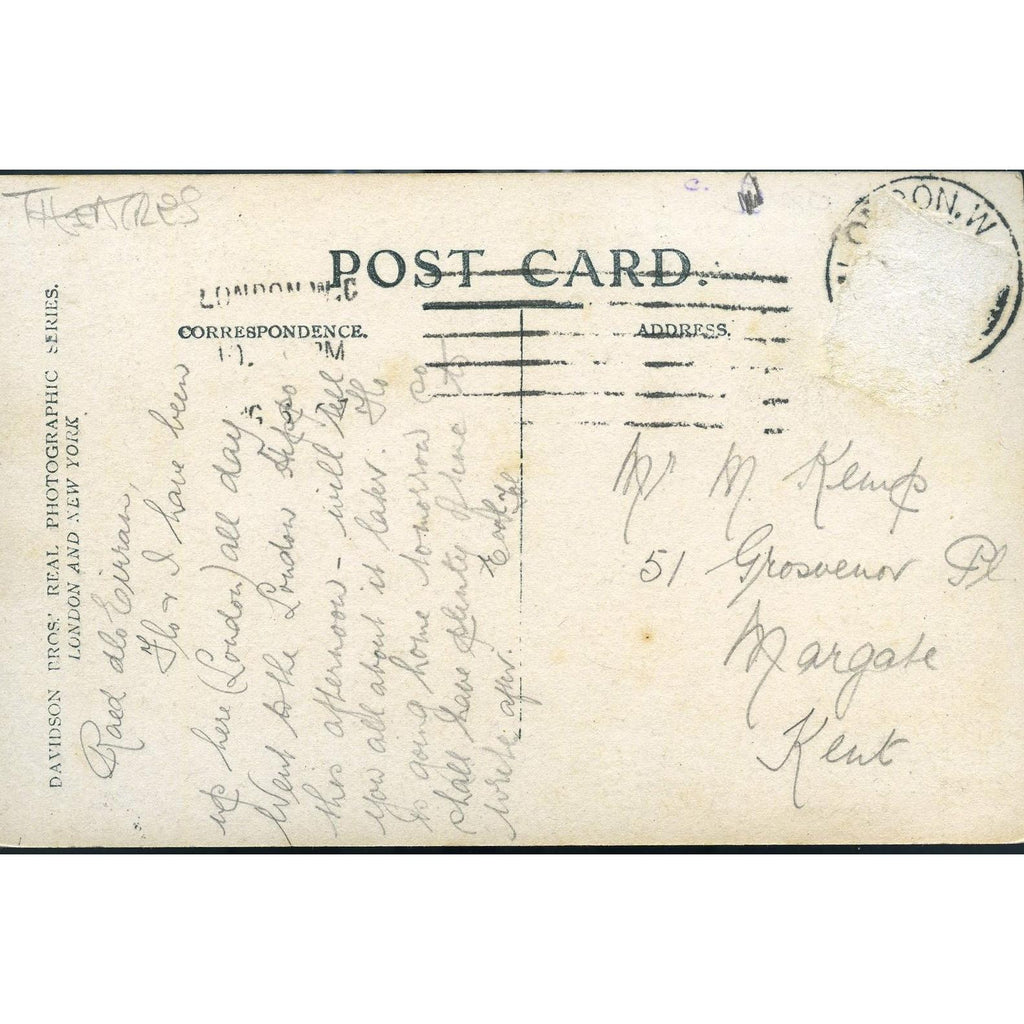 THEATRES
POST CARD.
LONDON. W.C
CORRESPONDENCE.
ADDRESS.
PM
LONDON. W
DAVIDSON BROS.' REAL PHOTOGRAPHIC SERIES.
LONDON AND NEW YORK
Raed dlo Eirran,
Flo & I have been
up here (London) all day
Went to the London Hippo
this afternoon - will tell
you all about it later. Flo
is going home tomorrow so
shall have plenty of time to
write after.
Mr M Kemp
51 Grosvenor Pl
Margate
Kent